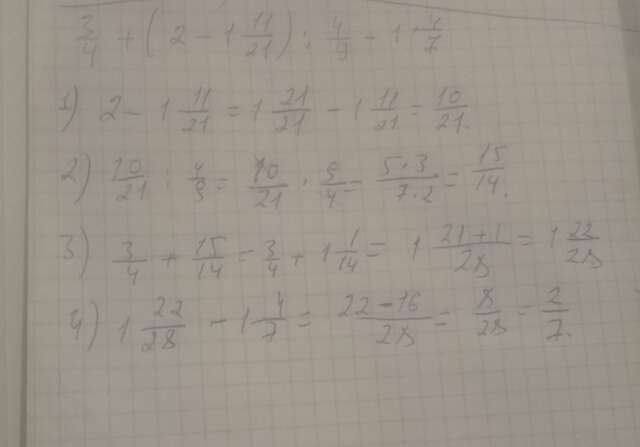 3/4 + (2 - 1 11/21) : 4/9 - 1 4/7
1) 2 - 1 11/21 = 1 21/21 - 1 11/21 = 10/21.
2) 10/21 : 4/9 = 10/21 · 9/4 = 5·3/7·2 = 15/14.
3) 3/4 + 15/14 = 3/4 + 1 1/14 = 1 21+1/28 = 1 22/28
4) 1 22/28 - 1 4/7 = 22-16/28 = 8/28 = 2/7.